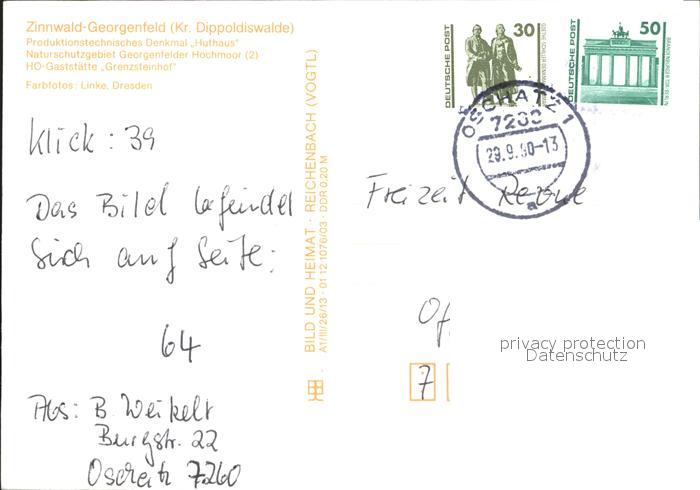 Zinnwald-Georgenfeld (Kr. Dippoldiswalde)
Produktionstechnisches Denkmal „Huthaus"
Naturschutzgebiet Georgenfelder Hochmoor (2)
HO-Gaststätte „Grenzsteinhof"
Farbfotos: Linke, Dresden
Klick: 39
Das Bild befindet
sich auf Seite:
64
Abs: B. Weikelt
Burgstr. 22
Oschatz 7260
BILD UND HEIMAT · REICHENBACH (VOGTL)
A1/III/26/13 · 01 12 1076/03 · DDR 0,20 M
DEUTSCHE POST
30
DEUTSCHE POST
50
BRANDENBURGER TOR BERLIN
OSCHATZ 1
29.9.90-13
a
Freizeit Revue
Of
7
privacy protection
Datenschutz